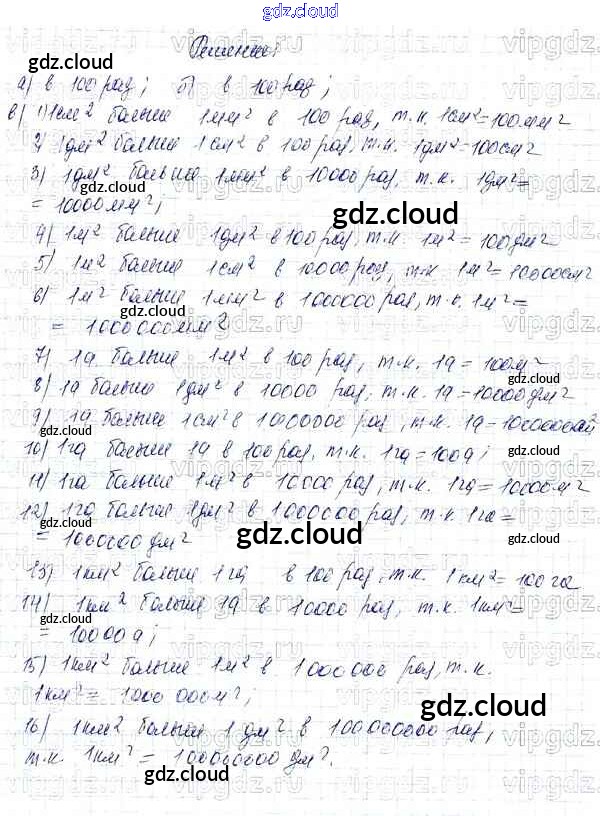 gdz.cloud
Решение:
а) в 100 раз; б) в 100 раз;
в) 1) 1см² больше 1мм² в 100 раз, т.к. 1см²=100мм²
2) 1дм² больше 1см² в 100 раз, т.к. 1дм²=100см²
3) 1дм² больше 1мм² в 10000 раз, т.к. 1дм²=
= 10000мм²;
4) 1м² больше 1дм² в 100 раз, т.к. 1м² = 100дм²
5) 1м² больше 1см² в 10000 раз, т.к. 1м² = 10000см²
6) 1м² больше 1мм² в 1000000 раз, т.к. 1м² =
= 1000000мм²
7) 1а больше 1м² в 100 раз, т.к. 1а = 100м²
8) 1а больше 1дм² в 10000 раз, т.к. 1а = 10000дм²
9) 1а больше 1см² в 1000000 раз, т.к. 1а =
10) 1га больше 1а в 100 раз, т.к. 1га = 100а;
11) 1га больше 1м² в 10000 раз, т.к. 1га = 10000м²
12) 1га больше 1дм² в 1000000 раз, т.к. 1га =
= 1000000дм²
13) 1км² больше 1га в 100 раз, т.к. 1км² = 100га
14) 1км² больше 1а в 10000 раз, т.к. 1км² =
= 10000а;
15) 1км² больше 1м² в 1000000 раз, т.к.
1км² = 1000000м²;
16) 1км² больше 1дм² в 100000000 раз,
т.к. 1км² = 100000000дм².